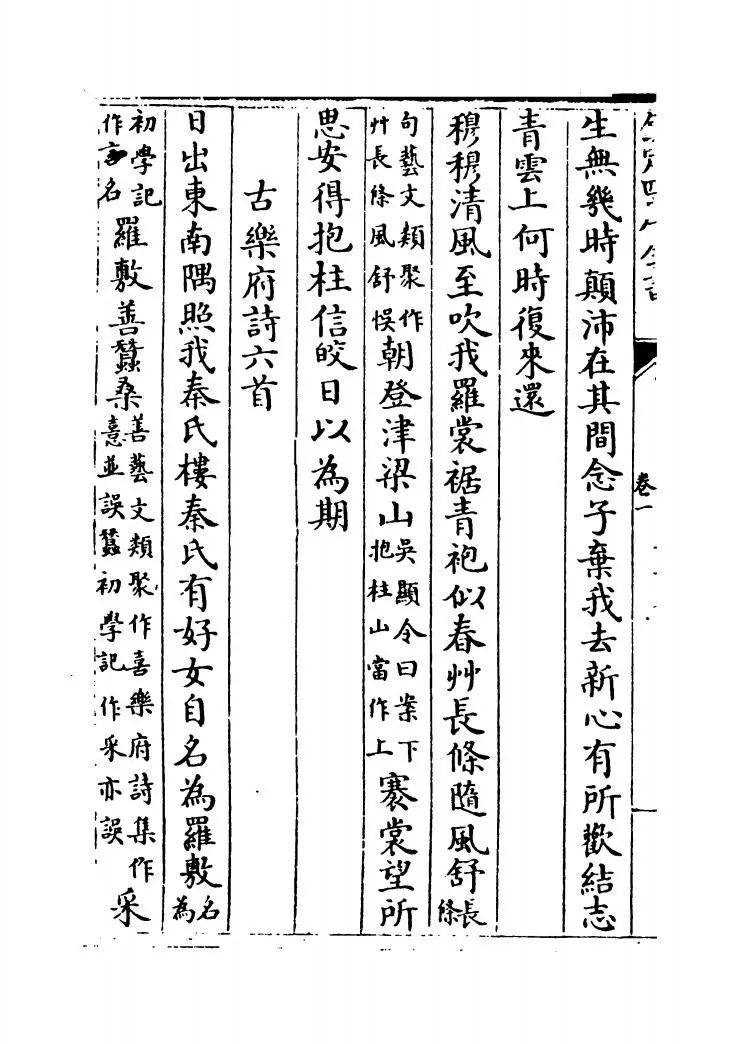 欽定四庫全書
卷一
生無幾時顛沛在其間念子棄我去新心有所歡結志
青雲上何時復來還
穆穆清風至吹我羅裳裾青袍似春艸長條隨風舒長條
句藝文類聚作艸長條風舒悞朝登津梁山吳顯令曰案下抱柱山當作上褰裳望所
思安得抱柱信皎日以為期
古樂府詩六首
日出東南隅照我秦氏樓秦氏有好女自名為羅敷名為
初學記作言名羅敷善蠶桑善藝文類聚作喜樂府詩集作憙並誤蠶初學記作采亦誤采